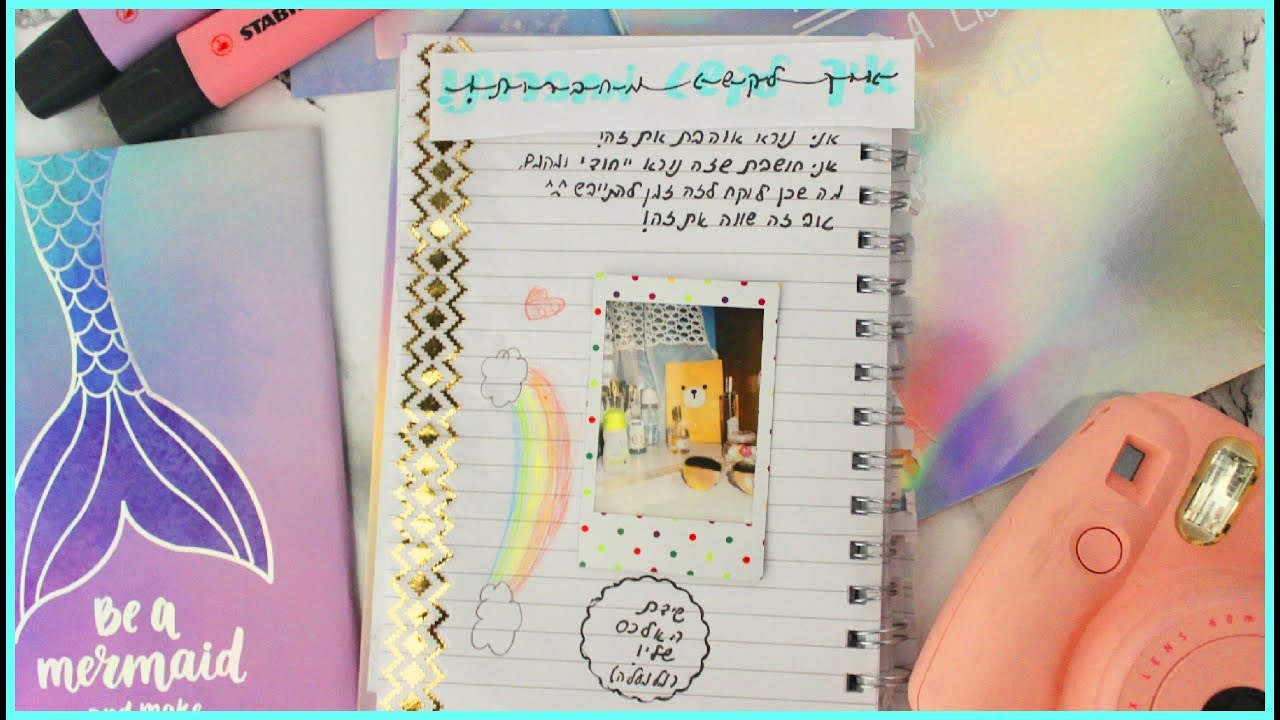 STABI
איך לקשט מחברות!
אני נורא אוהבת את זה!
אני חושבת שזה נורא ייחודי ומהמם.
מה שכן לוקח לזה זמן להתייבש ^^
זה שווה את זה!
שידת
האלכס
Be a
mermaid
and make
LENS 60m